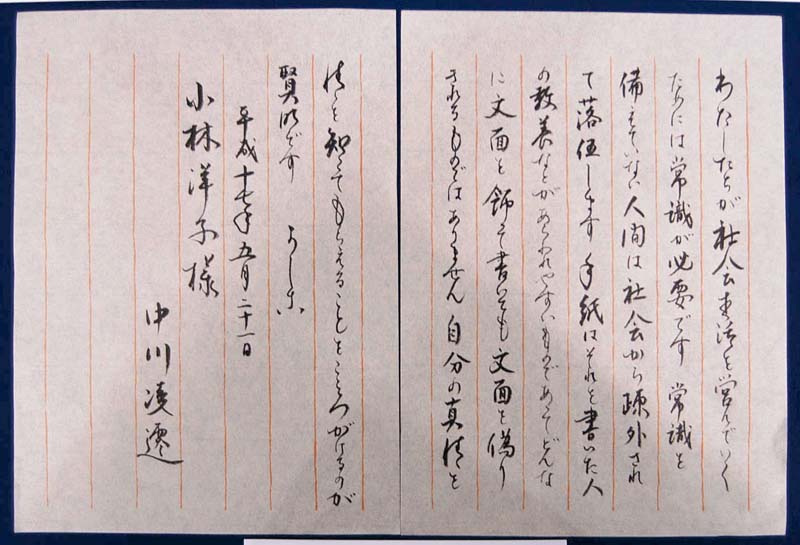 わたしたちが社会生活を営んでいく
ためには常識が必要です 常識を
備えていない人間は社会から疎外され
て落伍します 手紙はそれを書いた人
の教養などがあらわれやすいものであってどんな
に文面を飾って書いても文面を偽り
きれるものではありません 自分の真情を
情を知ってもらえることをこころがけるのが
賢明です
平成十七年五月二十一日
小林洋子様
中川凌遷